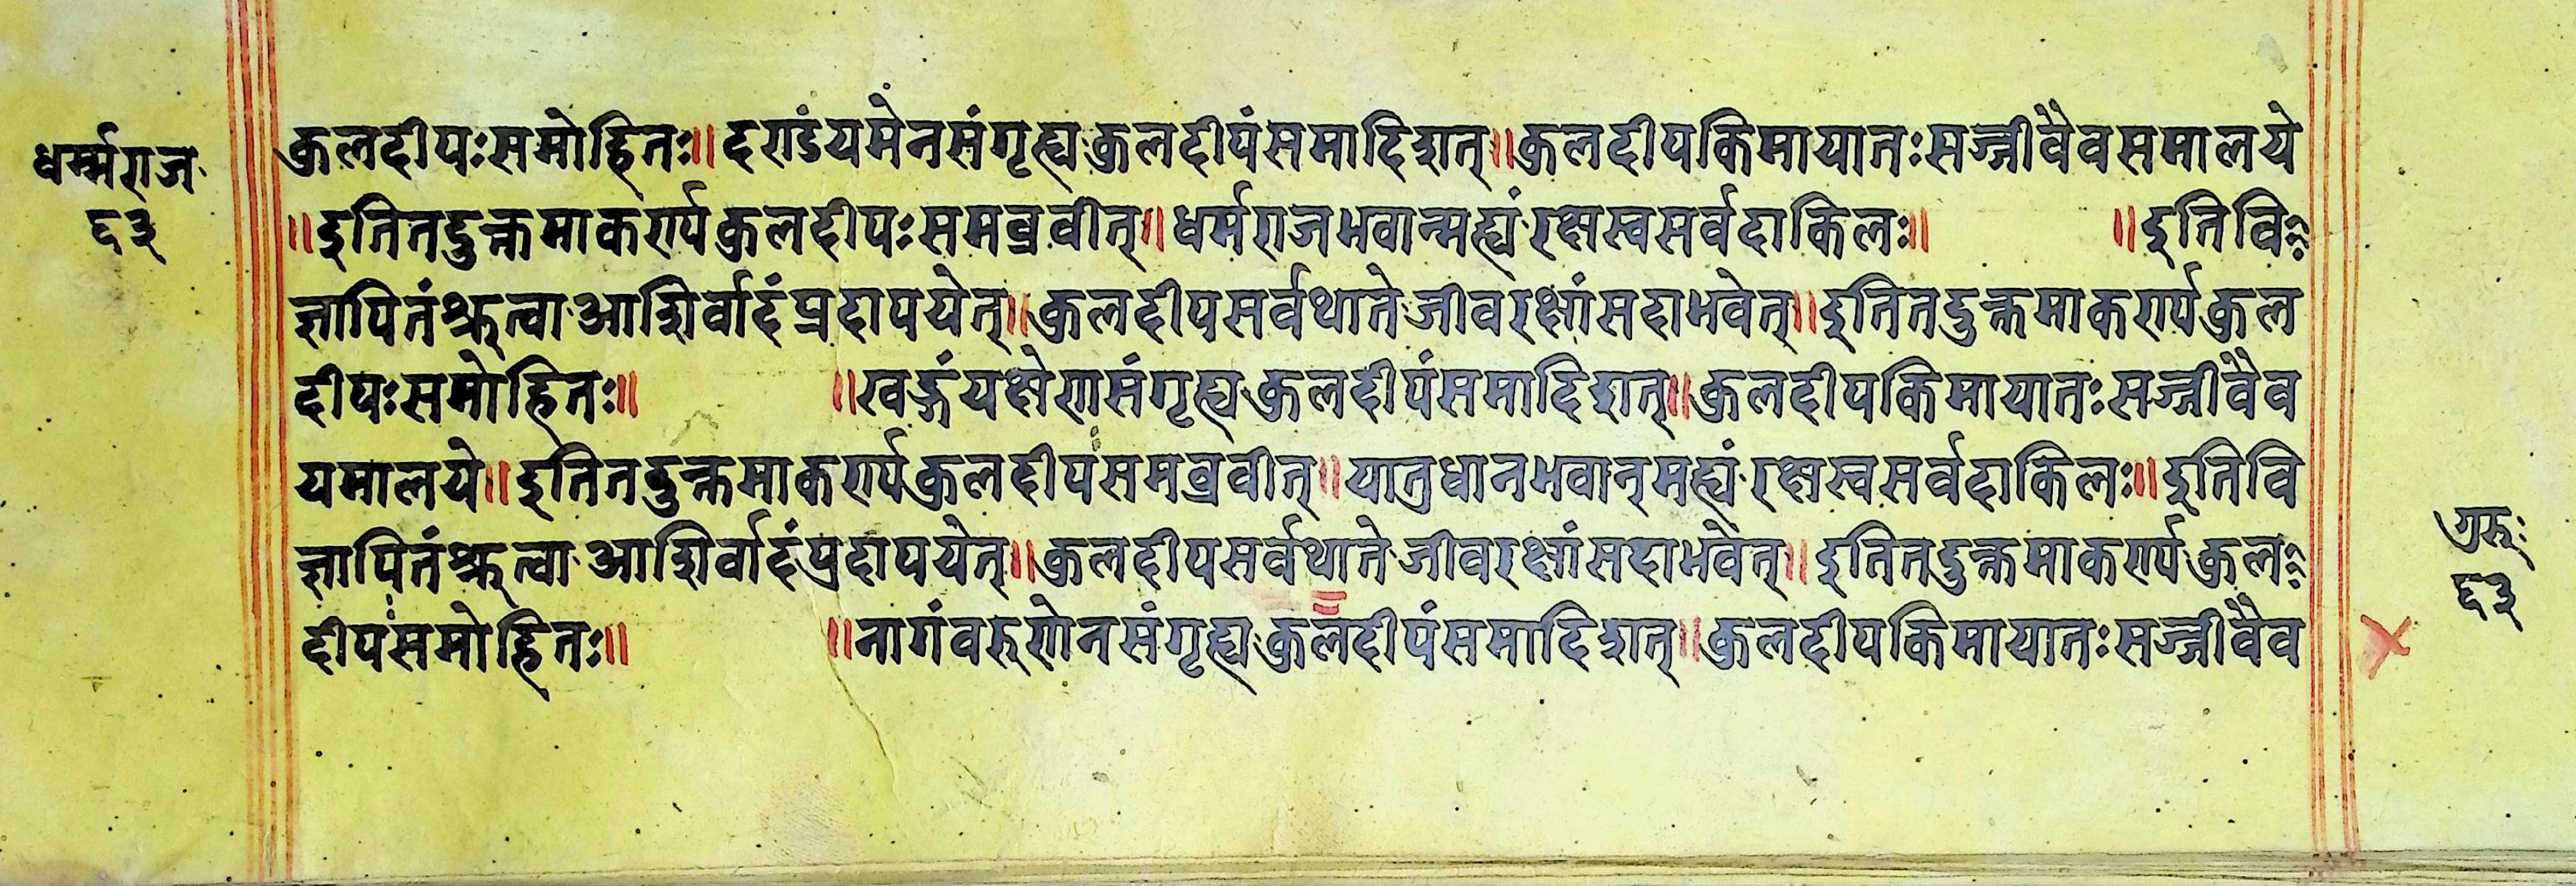 धर्म्मराज
६३
कुलदीपःसमोहितः॥ दण्डंयमेनसंगृह्य कुलदीपंसमादिशत्॥कुलदीपकिमायातःसज्जीवैवसमालये
॥इतितदुक्तमाकर्ण्यकुलदीपःसमब्रवीत्॥धर्मराजभवान्मह्यं रक्षस्वसर्वदाकिलः॥ ॥इतिवि
ज्ञापितंश्रुत्वा आशिर्वादंप्रदापयेत्॥कुलदीपसर्वथाते जीवरक्षांसदाभवेत्॥इतितदुक्तमाकर्ण्यकुल
दीपःसमोहितः॥ ॥खड्गंयक्षेणसंगृह्य कुलदीपंसमादिशत्॥कुलदीपकिमायातःसज्जीवैव
यमालये॥इतितदुक्तमाकर्ण्यकुलदीपःसमब्रवीत्॥यातुधानभवान्मह्यं रक्षस्वसर्वदाकिलः॥इतिवि
ज्ञापितंश्रुत्वा आशिर्वादंप्रदापयेत्॥कुलदीपसर्वथाते जीवरक्षांसदाभवेत्॥इतितदुक्तमाकर्ण्य कुल
दीपःसमोहितः॥ ॥नागंवरुणेनसंगृह्य कुलदीपंसमादिशत्॥कुलदीपकिमायातःसज्जीवैव
गुरुः
६३